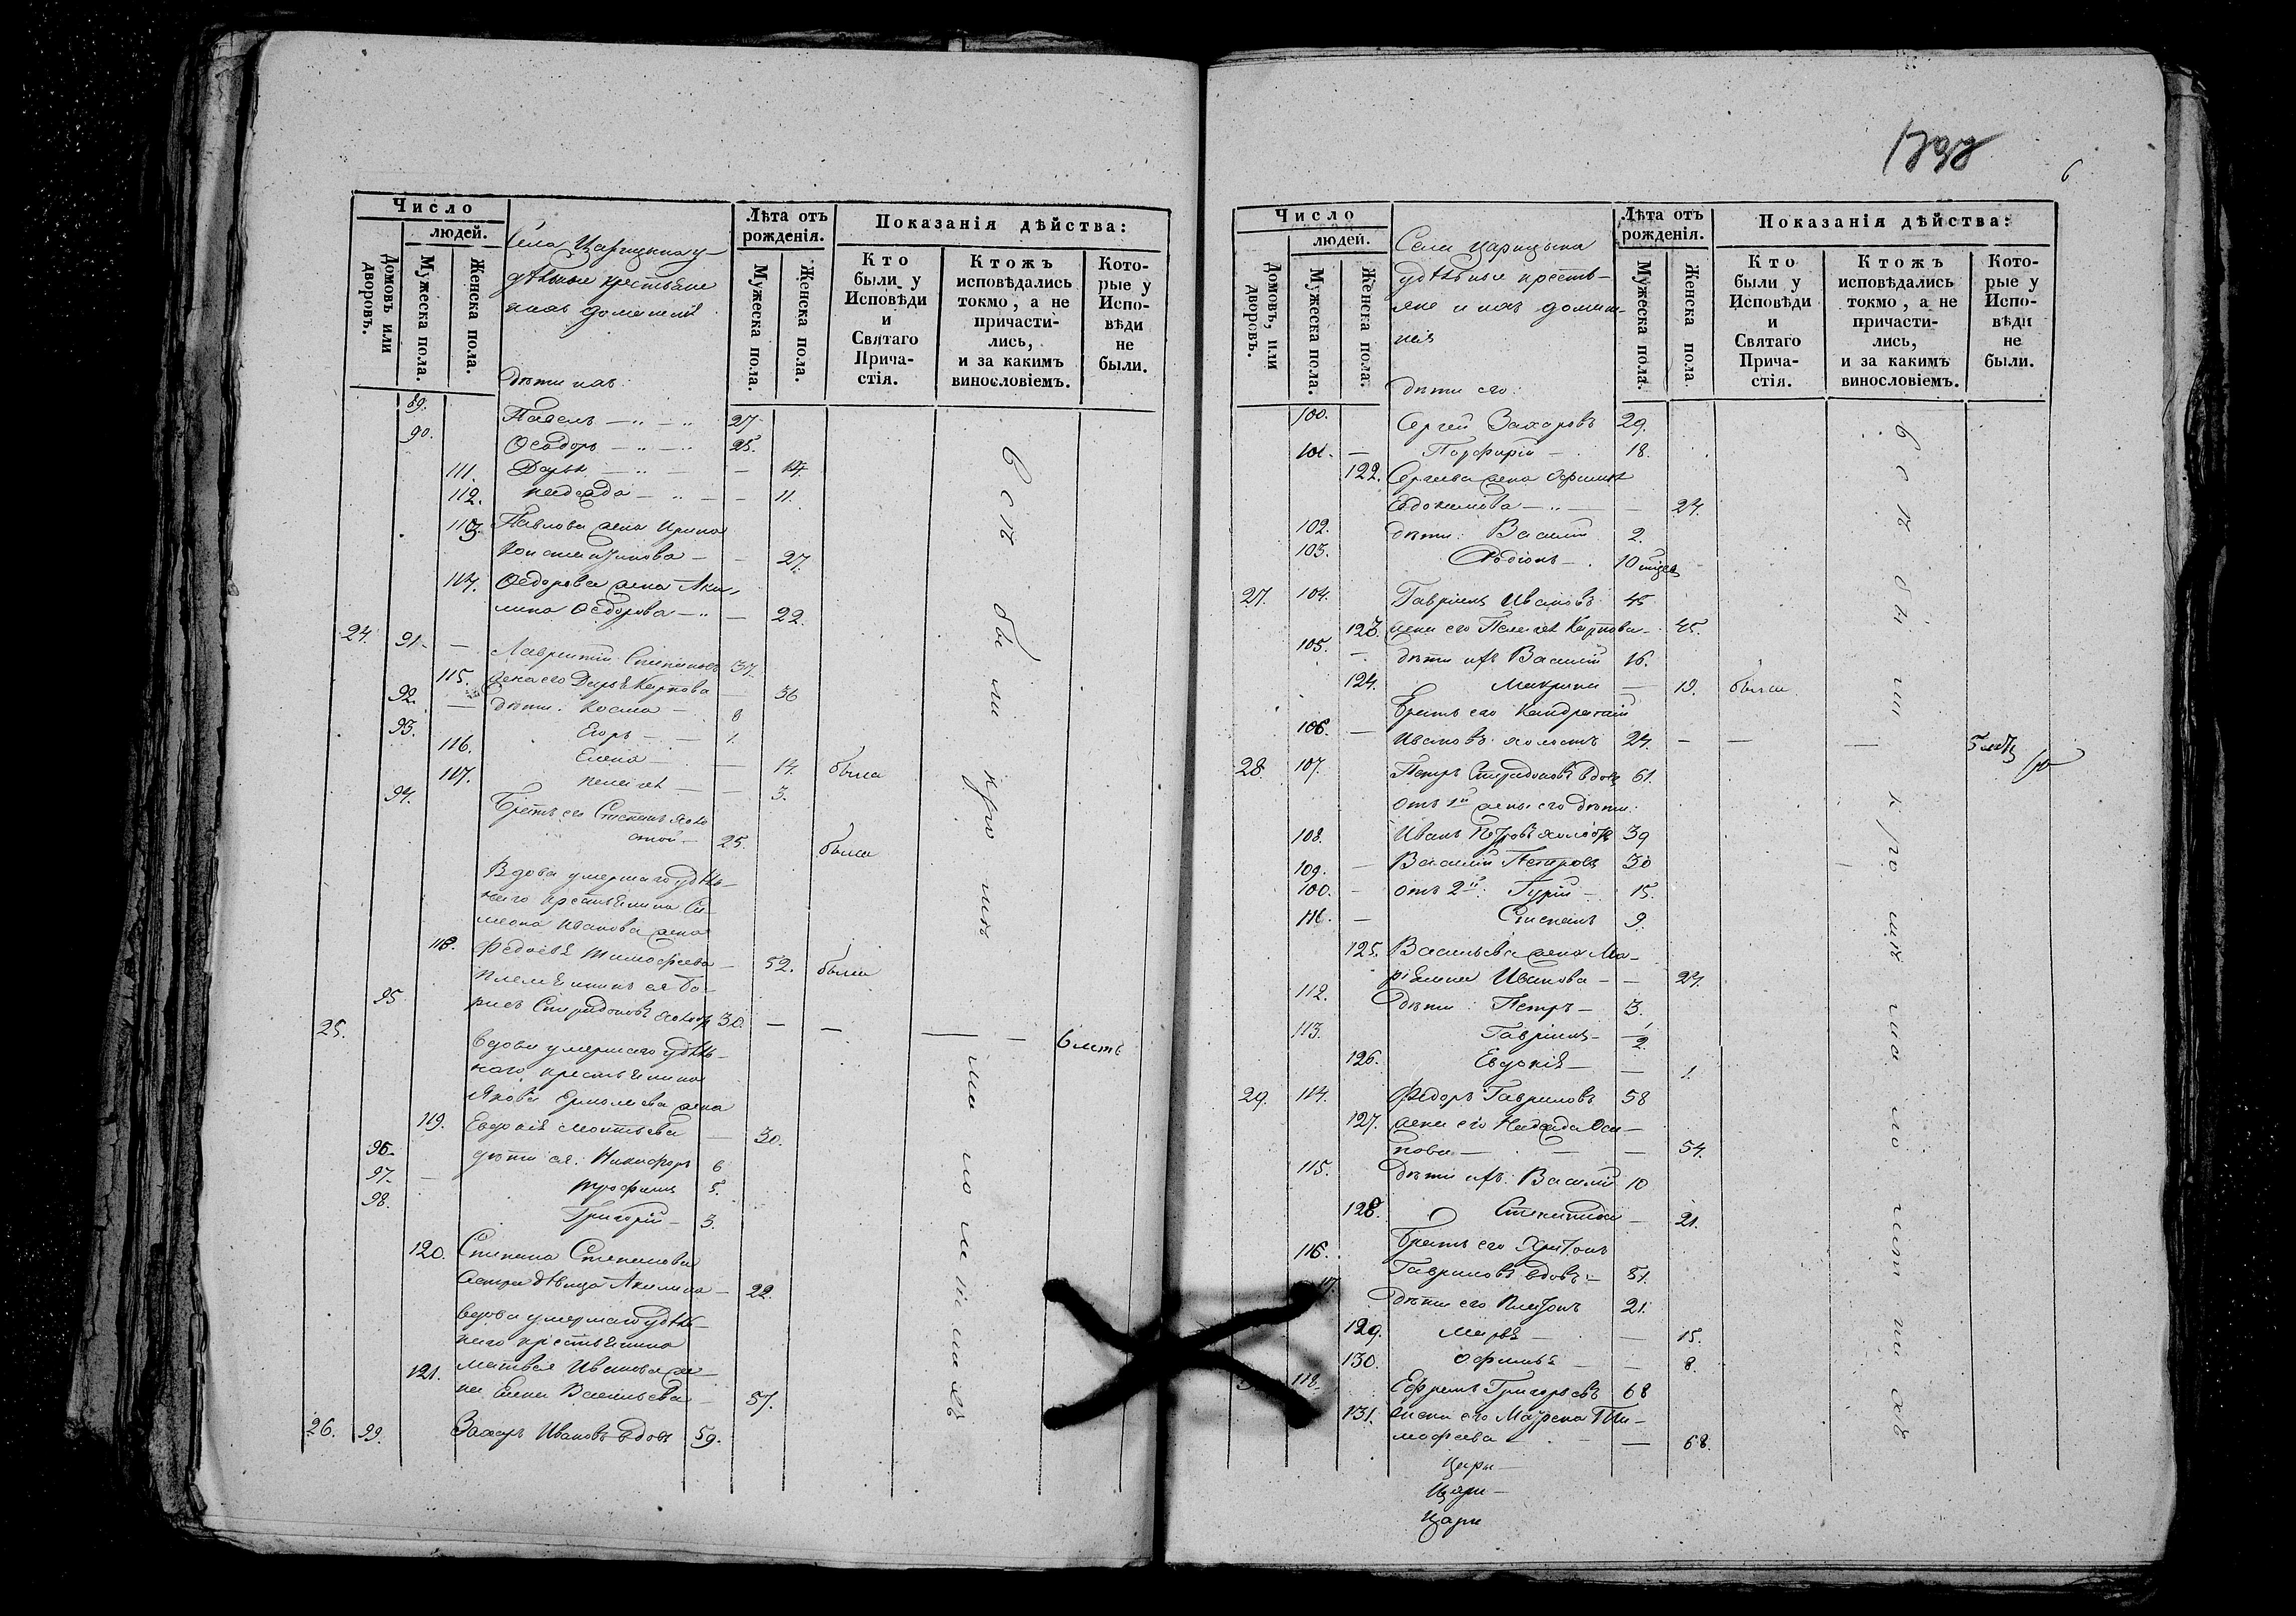 Число
людей.
Домовъ или дворовъ.
Мужеска пола.
Женска пола.
Села Царицына у-
дѣльные крестьяне
и ихъ домашнія
дѣти ихъ:
Лѣта отъ рожденія.
Мужеска пола.
Женска пола.
Показанія дѣйства:
Кто были у Исповѣди и Святаго Прича-стія.
Ктожъ исповѣдались токмо, а не причасти-лись, и за какимъ винословіемъ.
Кото-рые у Испо-вѣди не были.
89. Павелъ — „ — „ 27
90. Ѳеодоръ — „ — „ 25.
111. Дарья — „ — — 14.
112. Надежда — „ — — 11.
113. Павлова жена Ирина
Константинова — — 27.
114. Ѳедорова жена Аки-
лина Ѳедорова — „ — 22.
24. 91. — Лаврентій Степановъ 37.
115. жена его Дарья Карпова — 36
92. — дѣти: Косма — 8
93. Егоръ — — 1.
116. Елена — — 14. была
117. Пелагея — — 3.
94. Братъ его Степанъ холо
стой — 25. былъ
Вдова умершаго удѣль-
наго крестьянина Си-
меона Иванова жена
118. Федосья Тимофеева — 52. была
Племянникъ ея Бо-
95 рисъ Спиридоновъ холост 30. — — — — 6 летъ
25. вдова умершаго удѣль-
наго крестьянина
Якова Ермолаева жена
119. Евдокія Леонтьева — 30.
96. дѣти ея: Никифоръ 6
97. — Трофимъ 5.
98. Григорій — 3.
120. Степана Степанова
сестра дѣвица Акилина — 22.
вдова умершаго удѣль-
наго крестьянина
121. Матвея Иванова же-
на Елена Васильева — 57.
26. 99. Захаръ Ивановъ вдовъ 59.
Всѣ были кромѣ
малолетнихъ
1898
6
Число
людей.
Домовъ, или дворовъ.
Мужеска пола.
Женска пола.
Села Царицына
удѣльные кресть-
яне и ихъ домаш-
нія
дѣти его:
Лѣта отъ рожденія.
Мужеска пола.
Женска пола
Показанія дѣйства:
Кто были у Исповѣди и Святаго Прича-стія.
Ктожъ исповѣдались токмо, а не причасти-лись, и за какимъ винословіемъ.
Кото-рые у Испо-вѣди не были.
100. Сергей Захаровъ 29.
101. — Порфирій — 18.
122. Сергеева жена
Евдокимова — „ — — 24.
102. дѣти: Василій 2.
103. Родіонъ — 10 мцев
27. 104. Гавріилъ Ивановъ 45
123. жена его Пелагея Карпова — 45.
105. — дѣти ихъ Василій 16.
124. Макрина — 19. была
Братъ его Кондратій
106. — Ивановъ холостъ 24. — — — 5 летъ
28. 107. Петръ Спиридоновъ вдов 61.
отъ 1й жены его дѣти:
108. Иванъ Петровъ холост 39
109. — Василій Петровъ 30
100. — отъ 2й: Гурій — 15.
111. — Степанъ 9.
125. Васильева жена Ма-
ріамна Иванова — — 24.
112. дѣти: Петръ — 3.
113. Гавріилъ — 1/2.
126. Евдокія — — 1.
29. 114. Федоръ Гавриловъ 58
127. жена его Надежда Оси-
пова — — — 54.
115. Дѣти ихъ: Василій 10
128. Степанида — 21.
116. Братъ его Харитонъ
Гавриловъ вдовъ — 51.
117. Дѣти его Платонъ 21.
129. Марья — — 15.
130. Офимья — — 8.
118. Ефремъ Григорьевъ 68
131. жена его Маѵрена Ти-
мофеева — — — 68.
Цари —
Цари —
Цари
Всѣ были кромѣ малолетнихъ